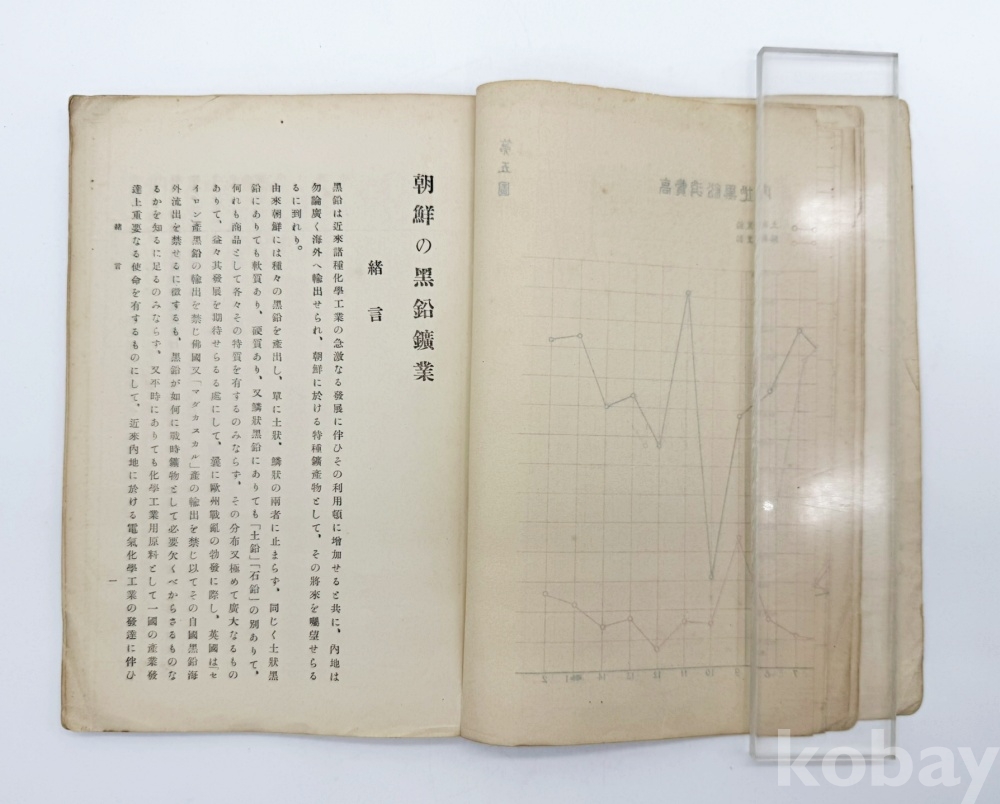 朝鮮の黑鉛鑛業
緒言
黑鉛は近來諸種化學工業の急激なる發展に伴ひその利用頓に增加せると共に、內地は
勿論廣く海外へ輸出せられ、朝鮮に於ける特種鑛產物として、その將來を囑望せらる
るに到れり。
由來朝鮮には種々の黑鉛を產出し、單に土狀、鱗狀の兩者に止まらず、同じく土狀黑
鉛にありても軟質あり、硬質あり、又鱗狀黑鉛にありても「土鉛」「石鉛」の別ありて、
何れも商品として各々その特質を有するのみならず、その分布又極めて廣大なるもの
ありて、益々其發展を期待せらるる處にして、曩に歐州戰亂の勃發に際し、英國は「セ
イロン」產黑鉛の輸出を禁じ佛國又「マダカスカル」產の輸出を禁じ以てその自國黑鉛海
外流出を禁せるに徵するも、黑鉛が如何に戰時鑛物として必要欠くべからさるものな
るかを知るに足るのみならず、又平時にありても化學工業用原料として一國の產業發
達上重要なる使命を有するものにして、近來內地に於ける電氣化學工業の發達に伴ひ
緒言
一
第五圖
kobay